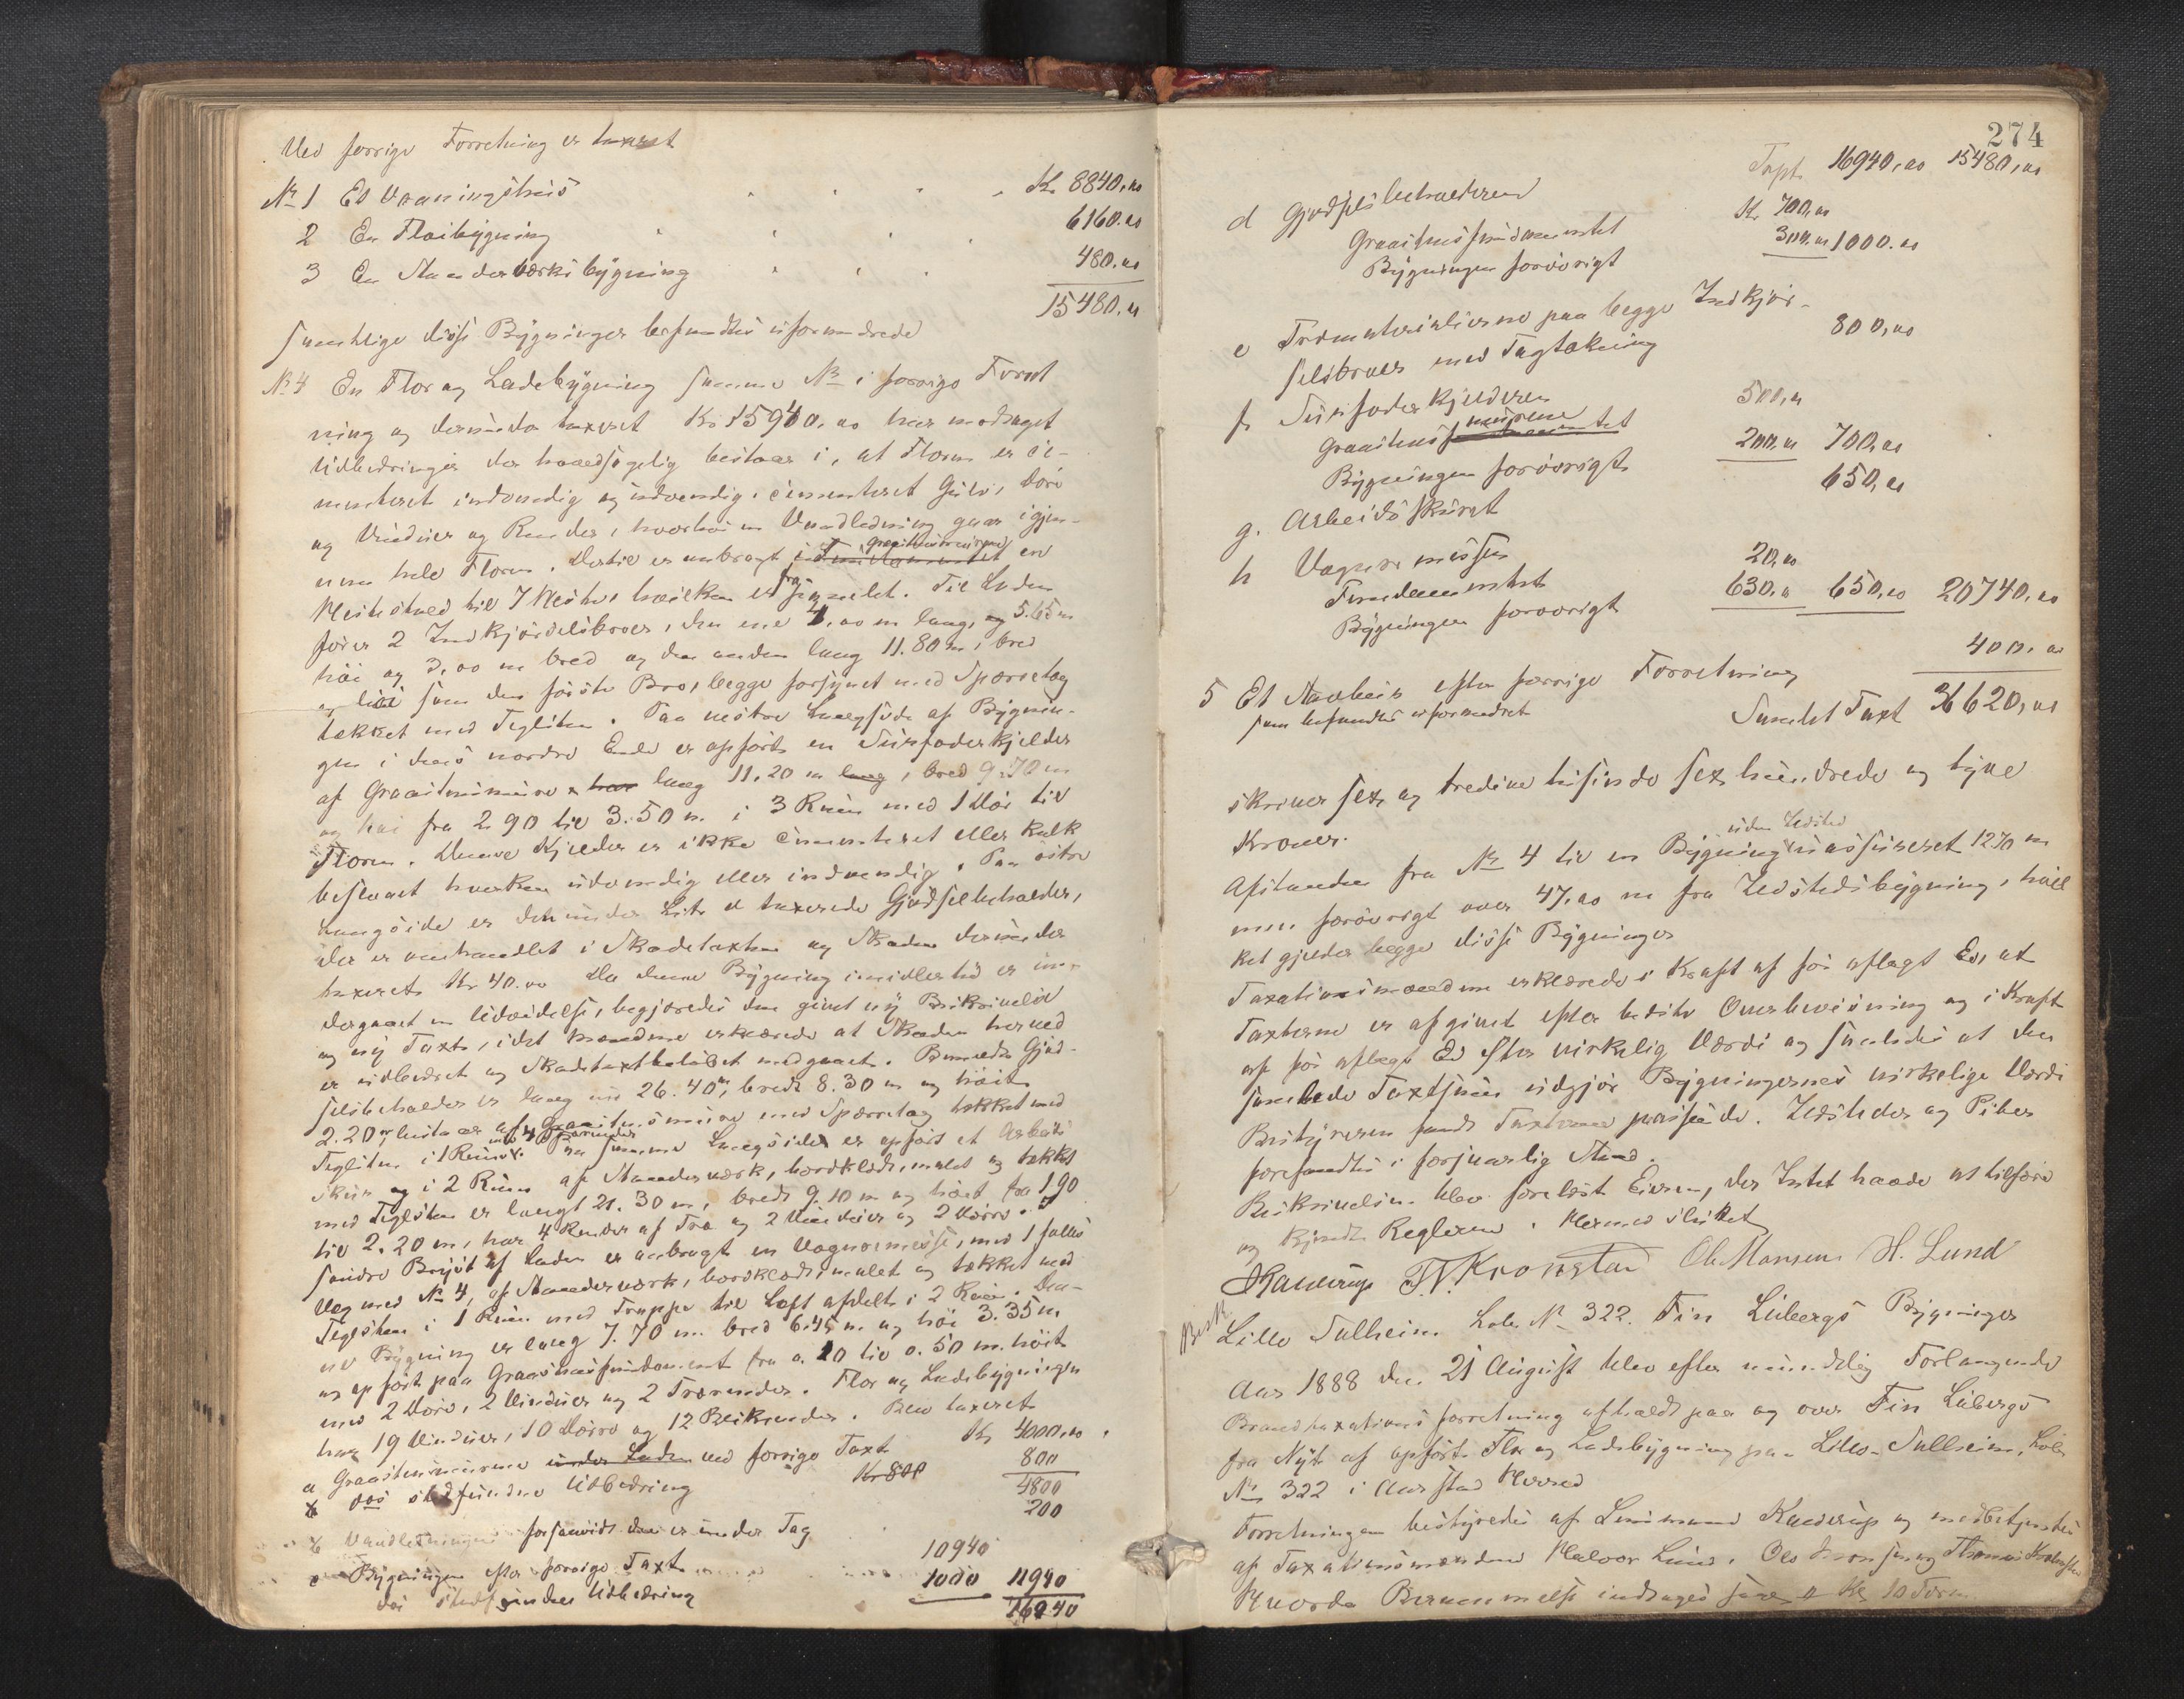 Ved forrige Forretning er taxeret
No 1 Et Vaaningshus Kr 8840,00
2 En Fløibygning 6160.00
3 En Standerværksbygning 480.00
15480.00
Samtlige disse Bygninger befandtes uforandrede
No 4 En Flor og Ladebygning samme No i forrige Forret
ning og derunder taxeret Kr 15940.00 har modtaget
Udbedringer der hovedsagelig bestaar i, at Floren er ce-
menteret indvendig og udvendig, cementeret Gulv, Døre
og Vinduer og Render, hvorhos en Vandledning gaar igjen-
nem hele Floren. Dertil er anbragt i Fundamentet Graastensmuren en
Hestestald til 7 Heste, hvilken er fra skilt. Til Laden
fører 2 Indkjørselsbroer, den ene 4,00 m lang, og 5.65 m
høi og 3,00 m bred og den anden lang 11.80 m, bred
og høi som den første Bro, begge forsynet med Sperretag
tækket med Teglsten. Paa vestre Langside af Bygnin-
gen i dens nordre Ende er opført en Surfoderkjelder
af Graastensmure har lang 11.20 m lang, bred 9.70 m
og høi fra 2.90 til 3.50 m. i 3 Rum med 1 Dør til
Floren. Denne Kjelder er ikke cementeret eller kalk
beslaaet hverken udvendig eller indvendig. Paa østre
Langside er den under Litr d taxerede Gjødselbeholder,
der er omhandlet i Skadetaxten og Skaden derunder
taxeret Kr 40.00 Da denne Bygning imidlertid er un-
dergaaet en Udvidelse, begjæredes den givet ny Beskrivelse
og ny Taxt, idet Mændene erklærede at Skaden herved
er udbedret og Skadetaxtbeløbet medgaaet. Bemeldte Gjød-
selbeholder er lang nu 26.40 m, bred 8.30 m og høit
2.20 m, bestaar af Graastensmure med Sperretag tækket med
Teglsten i 1 Rum med 4 Trærender Paa samme Langside er opført et Arbeids
skur og i 2 Rum af Standerværk, bordklædt, malet og tækket
med Teglsten er langt 21.30 m, bredt 9.10 m og høit fra 1.90
til 2.20 m, har 4 Render af Træ og 2 Vinduer og 2 Døre. I
søndre Bryst af Laden er anbragt en Vognremisse, med 1 fælles
Væg med No 4, af Standerværk, bordklædt, malet og tækket med
Teglsten i 1 Rum med Trappe til Loft afdelt i 2 Rum. Den-
ne Bygning er lang 7.70 m. bred 6.45 m. og høi 3.35 m
og opført paa Graastensfundament fra 0.10 til 0.50 m. høit
med 2 Døre, 2 Vinduer og 2 Trærender. Flor og Ladebygningen
har 19 Vinduer, 10 Døre og 12 Blikrender. Blev taxeret
a Graastensmurene under Laden ved forrige Taxt Kr 4000,00
dos stedfundne Udbedring Kr 800 800
4800
b Vandledningen forsaavidt den er under Tag 200
c Bygningen efter forrige Taxt 10940
dos stedfunden Udbedring 1000 11940
16940
274
Tspt. 16940,00 15480,00
d Gjødselbeholderen
Graastensfundamentet Kr 700,00
Bygningen forøvrigt 300.00 1000.00
e Træmaterialierne paa begge Indkjør-
selsbroer med Tagtækning 800,00
f Surfoderkjelderen
Graastensfundamentet murene 500,00
Bygningen forøvrigt 200.00 700,00
g. Arbeidsskuret 650,00
h Vognremissen
Fundamentet 20,00
Bygningen forøvrigt 630.00 650,00 20740,00
5 Et Stabur efter forrige Forretning 400.00
som befandtes uforandret
Samlet Taxt 36620,00
skriver sex og tredive tusinde sex hundrede og tyve
Kroner.
Afstanden fra No 4 til en Bygning uden Ildsted uassureret 12,70 m
men forøvrigt over 47,00 m fra Ildstedsbygning, hvil
ket gjelder begge disse Bygninger
Taxationsmændene erklærede i Kraft af før aflagt Ed, at
Taxterne er afgivet efter bedste Overbevisning og i Kraft
af før aflagt Ed efter virkelig Værdi og saaledes at den
samlede Taxtsum udgjør Bygningernes virkelige Værdi
Bestyreren fandt Taxterne passende. Ildsteder og Piber
forefandtes i forsvarlig Stand.
Beskrivelsen blev forelæst Eieren, der Intet havde at tilføie
og kjendte Reglerne. Hermed sluttet
Kaurup T. N. Kronstad Ole Hansen H. Lund
Besk.
Lille Sulheim Løbe No 322. Fin Lübergs Bygninger
Aar 1888 den 21 August blev efter mundtlig Forlangende
Brandtaxationsforretning afholdt paa og over Fin Lübergs
fra Nyt af opført Flor og Ladebygning paa Lille-Sulheim, Løbe
No 322 i Herred
Forretningen bestyredes af Lensmand Kaurup og medbetjentes
af Taxationsmændene Halvor Lund, Ole Hansen og Kronstad
hvorda Bernemelse indtages